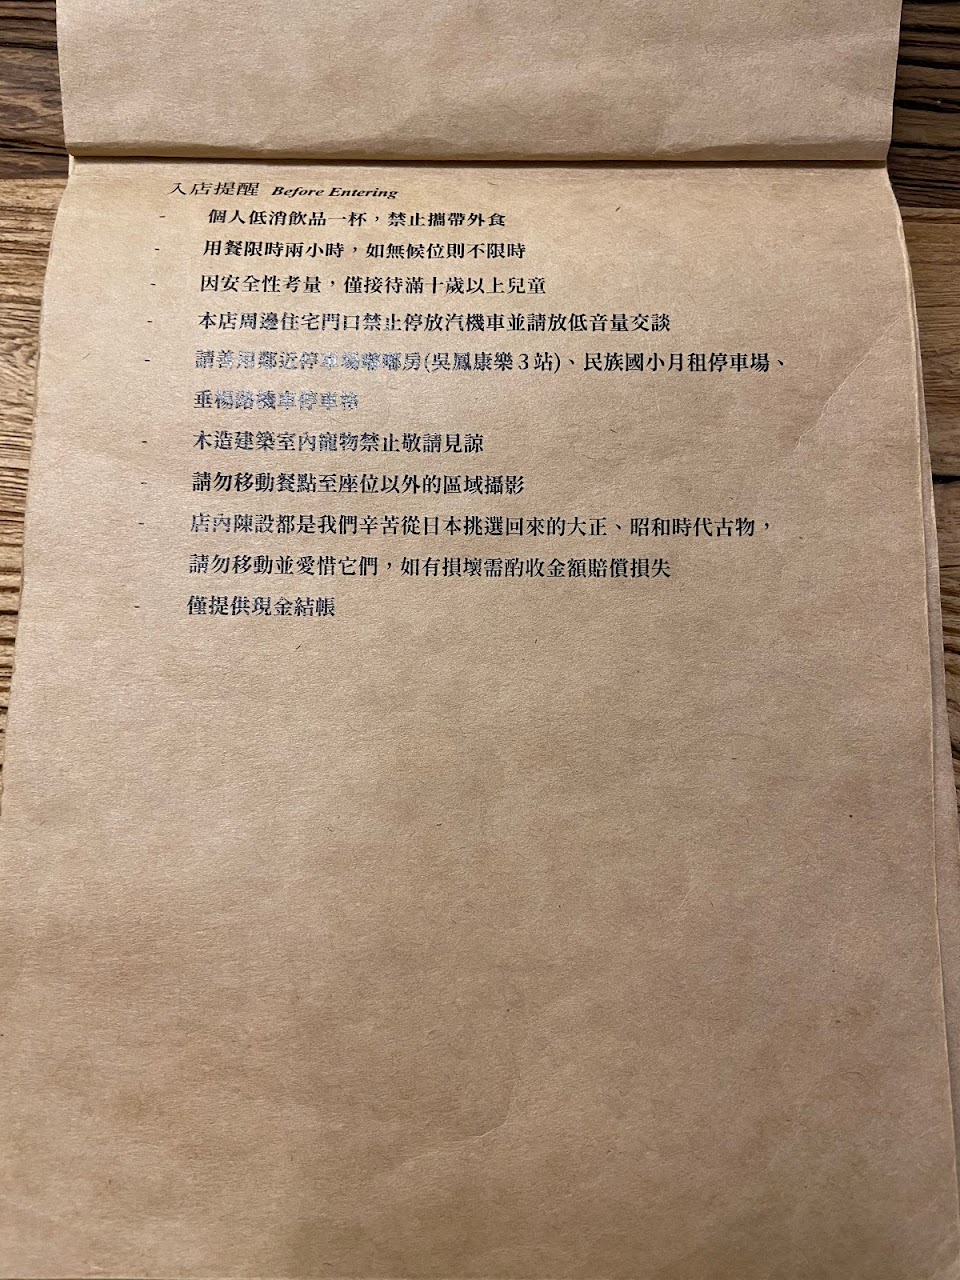 入店提醒 Before Entering
- 個人低消飲品一杯，禁止攜帶外食
- 用餐限時兩小時，如無候位則不限時
- 因安全性考量，僅接待滿十歲以上兒童
- 本店周邊住宅門口禁止停放汽機車並請放低音量交談
- 請善用鄰近停車場嘟嘟房(吳鳳康樂3站)、民族國小月租停車場、
垂楊路機車停車格
- 木造建築室內寵物禁止敬請見諒
- 請勿移動餐點至座位以外的區域攝影
- 店內陳設都是我們辛苦從日本挑選回來的大正、昭和時代古物，
請勿移動並愛惜它們，如有損壞需酌收金額賠償損失
- 僅提供現金結帳